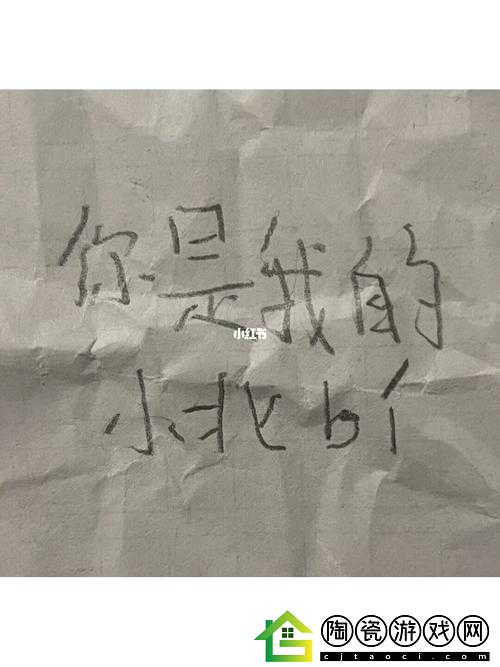 你是我的
小红书
小北bí
陶瓷游戏网
cjtaoci.com